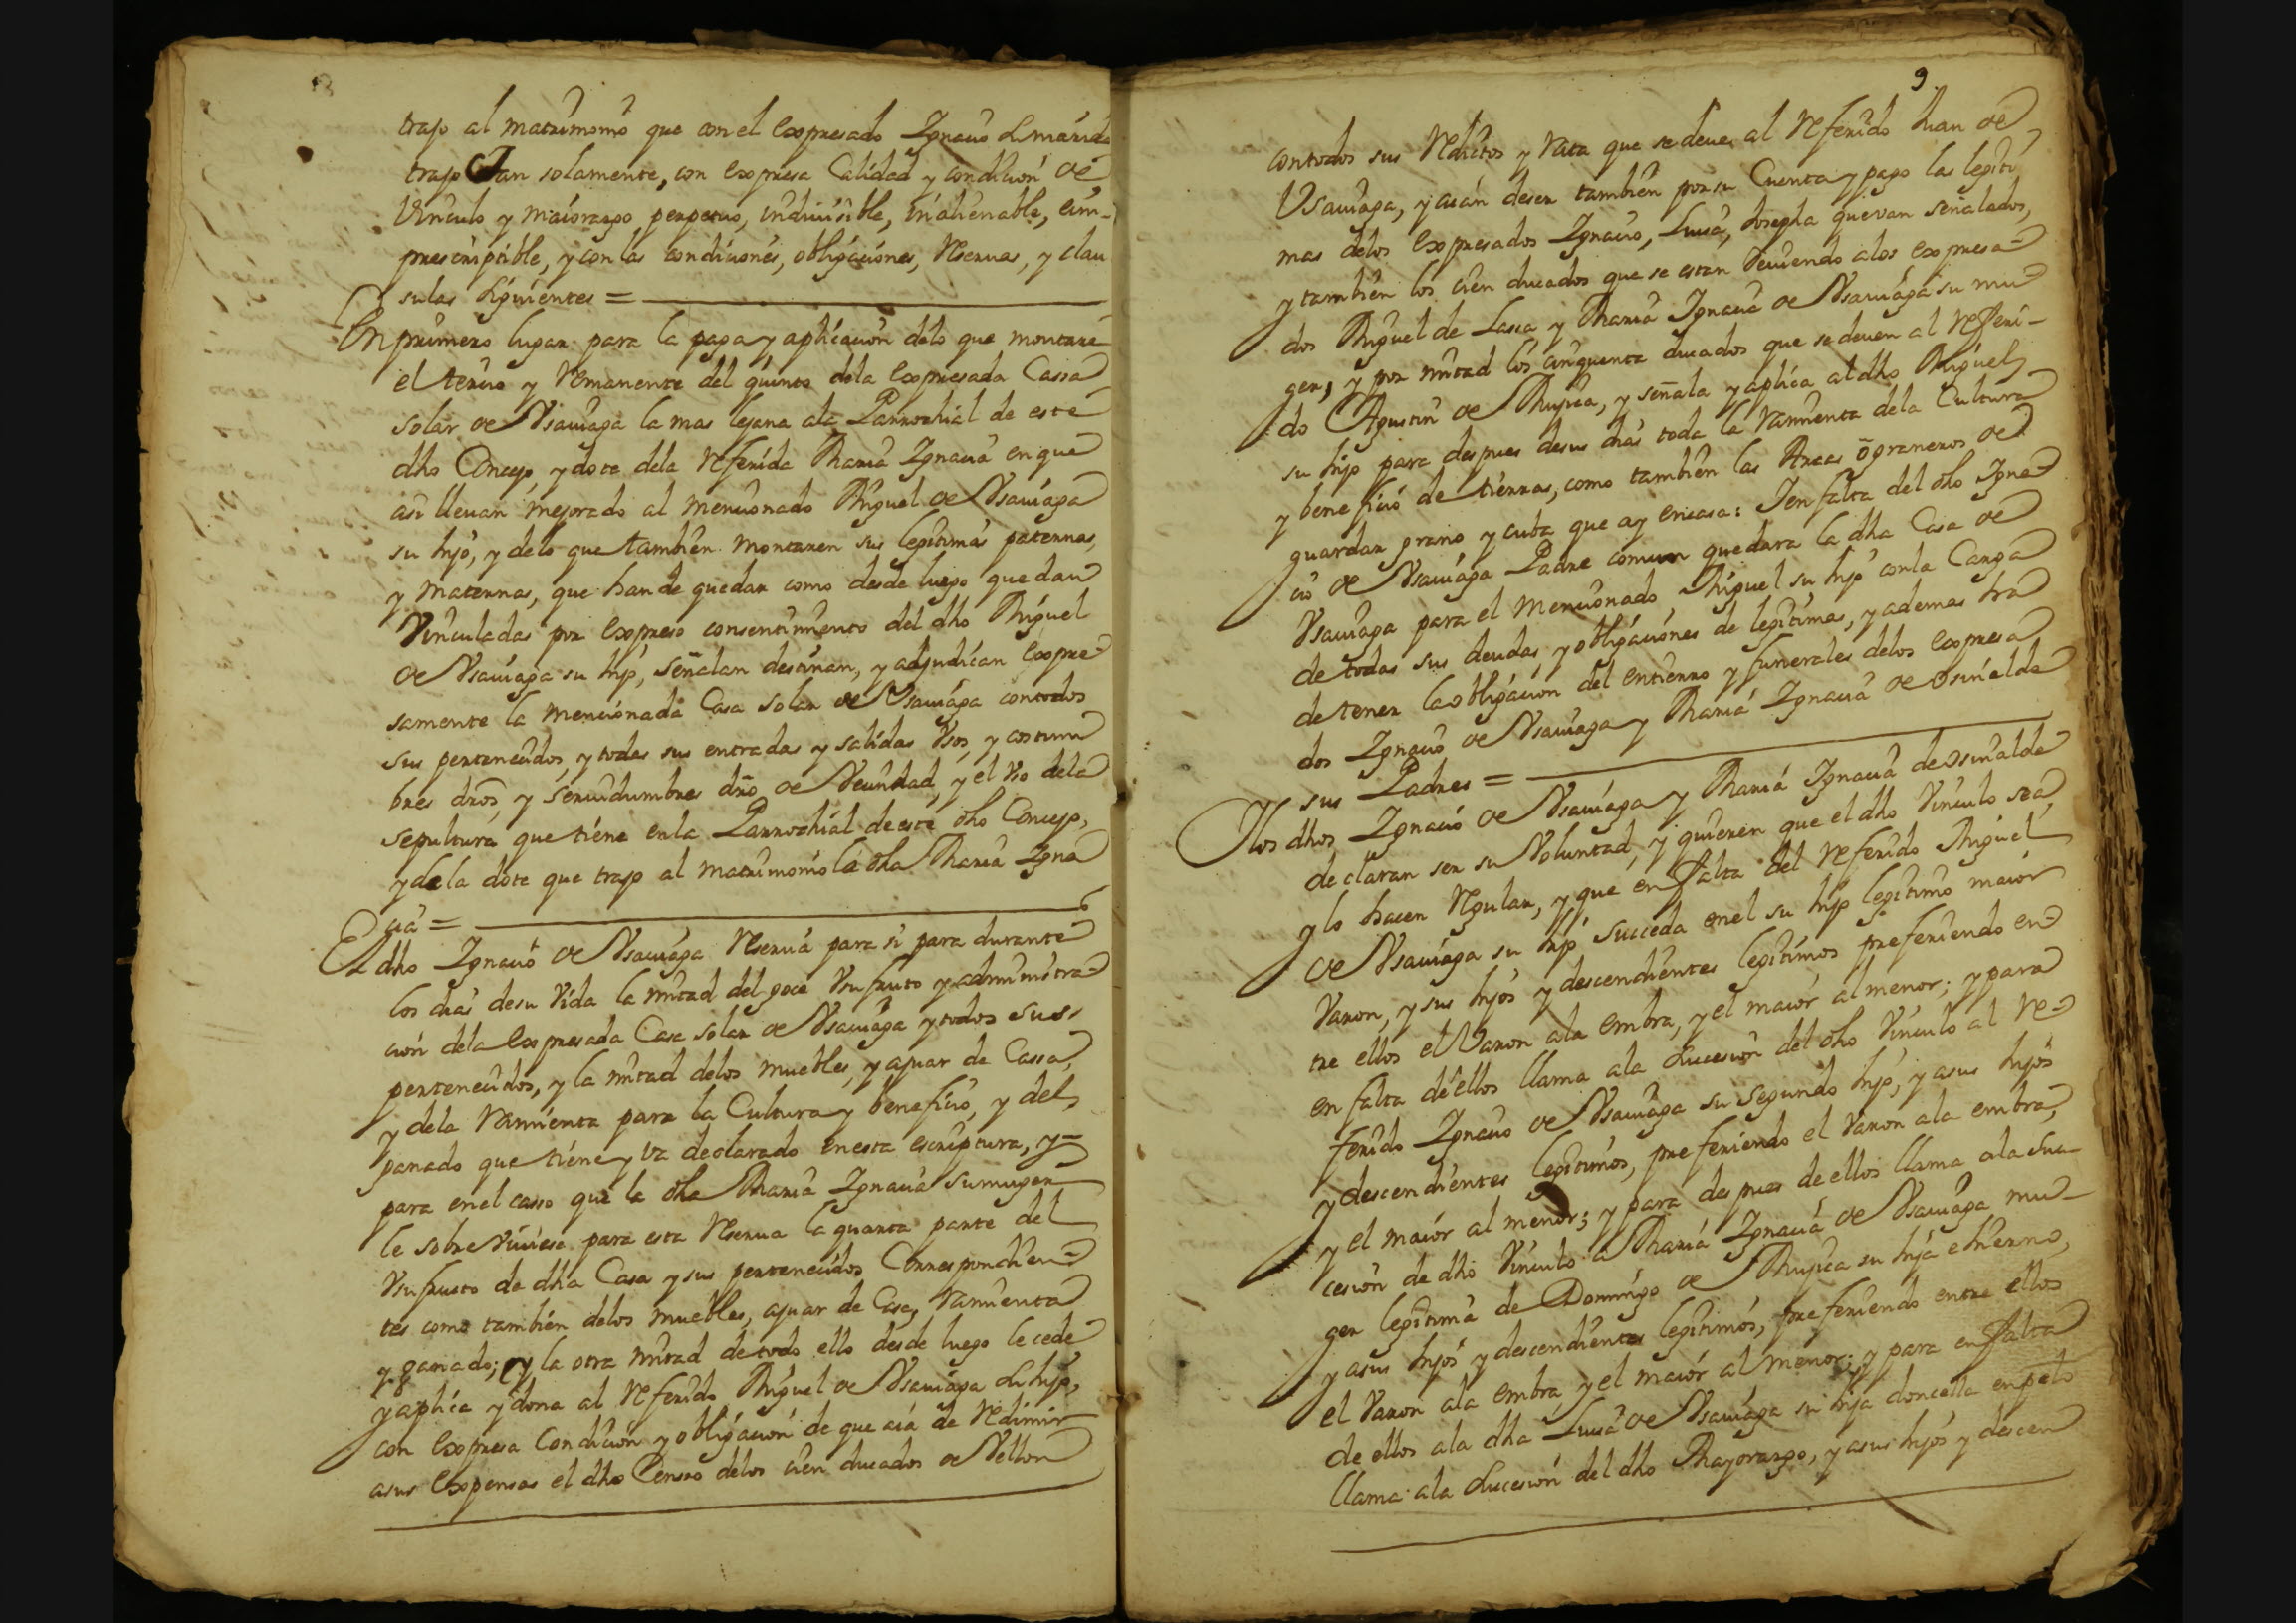 trajo al matrimonio que con el expresado Ignacio su marido
trajo tan solamente, con expresa Calidad y condicion de
Vinculo y maiorazgo perpetuo, indiuisible, inalienable, e im-
prescriptible, y con las condiciones, obligaciones, Reseruas, y clau
sulas siguientes =
En primero lugar para la paga y aplicacion delo que montare
el tercio y Remanente del quinto dela expresada Cassa
solar de Vsauiaga la mas lejana ala Parrochial de este
dho Concejo, y dote dela Referida Maria Ignacia en que
asi lleuan mejorado al mencionado Miguel de Vsauiaga
su hijo, y delo que tambien montaren sus legitimas paternas,
y maternas, que han de quedar como desde luego quedan
Vinculadas por expreso consentimiento del dho Miguel
de Vsauiaga su hijo, señalan destinan, y adjudican expre
samente la mencionada Casa solar de Vsauiaga con todos
sus pertenecidos, y todas sus entradas y salidas Vsos, y costum
bres dros, y seruidumbres dro de Vecindad, y el Vso dela
sepultura que tiene en la Parrochial de este dho Concejo,
y de la dote que trajo al matrimonio la dha Maria Igna
cia =
El dho Ignacio de Vsauiaga Reserua para si para durante
los dias de su Vida la mitad del goce Vsufruto y administra
cion dela expresada Casa solar de Vsauiaga y todos sus
pertenecidos, y la mitad delos muebles, y ajuar de Cassa,
y dela Ramienta para la Cultura y beneficio, y del
ganado que tiene y va declarado en esta escriptura, y
para en el casso que la dha Maria Ignacia su muger
le sobre viuiese para esta Reserua la quarta parte del
Vsufruto de dha Casa y sus pertenecidos Correspondien
tes como tambien delos muebles, ajuar de Casa, Ramienta
y ganado; y la otra mitad de todo ello desde luego le cede
y aplica y dona al Referido Miguel de Vsauiaga su hijo,
con expresa Condicion y obligacion de que aia de Redimir
asus expensas el dho Censo delos cien ducados de Vellon
9
con todos sus Reditos y Rata que se deue, al Referido Juan de
Vsauiaga, y aian de ser tambien por su Cuenta y pago las legiti
mas delos expresados Ignacio, Luisa, Josepha que van señalados,
y tambien los cien ducados que se estan deuiendo alos expresa
dos Miguel de Lasa, y Maria Ignacia de Vsauiaga su mu
ger, y por mitad los cinquenta ducados que se deuen al Referi-
do Agustin de Mujica, y señala y aplica al dho Miguel
su hijo para despues de sus dias toda la Ramienta dela Cultura
y beneficio de tierras, como tambien las Arcas o graneros de
guardar grano y cuba que ay en casa: Y en falta del dho Igna
cio de Vsauiaga Padre comun quedara la dha Casa de
Vsauiaga para el mencionado Miguel su hijo con la Carga
de todas sus deudas, y obligaciones de legitimas, y ademas hra
de tener la obligacion del entierro y funerales delos expresa
dos Ignacio de Vsauiaga y Maria Ignacia de Osinalde
sus Padres =
Y los dhos Ignacio de Vsauiaga y Maria Ignacia de Osinalde
declaran ser su Voluntad, y quieren que el dho Vinculo sea,
y lo hacen Regular, y que en falta del referido Miguel
de Vsauiaga su hijo succeda en el su hijo legitimo maior
Varon, y sus hijos y descendientes legitimos prefiriendo en
tre ellos el Varon ala embra, y el maior al menor; y para
en falta de ellos llama ala sucesion del dho Vinculo al Re
ferido Ignacio de Vsauiaga su segundo hijo, y asus hijos
y descendientes legitimos, prefiriendo el Varon ala embra,
y el maior al menor; y para despues de ellos llama ala su
cesion de dho Vinculo a Maria Ignacia de Vsauiaga mu-
ger legitima de Domingo de Mujica su hija e hierno,
y asus hijos y descendientes legitimos, prefiriendo entre ellos
el Varon ala embra y el maior al menor; y para en falta
de ellos ala dha Luisa de Vsauiaga su hija doncella en pelo
llama ala sucesion del dho Mayorazgo, y asus hijos y descen